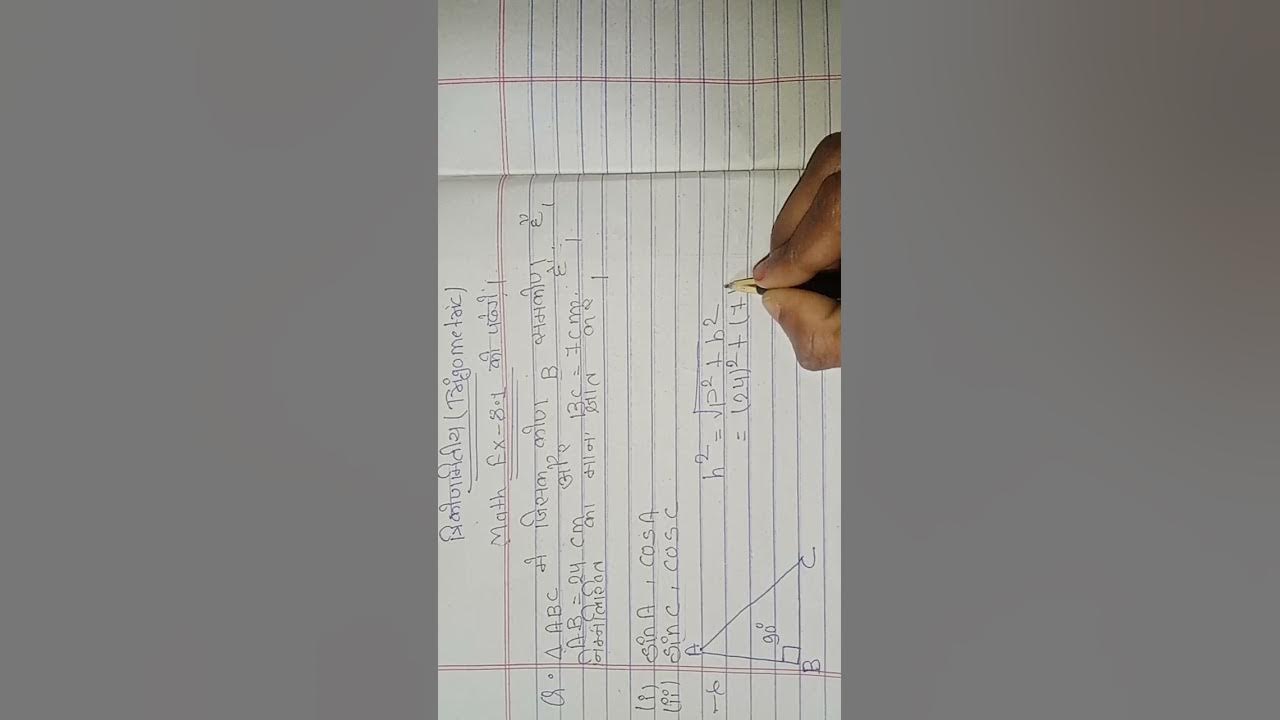 त्रिकोणमितीय (Trigometric)
Math Ex-8.1 को पढ़ेंगे।
Q. △ABC में जिसका कोण B समकोण है,
AB = 24 cm और BC = 7cm. है।
निम्नलिखित का मान ज्ञात करें।
(i) sin A, cos A
(ii) sin C, cos C
A
90°
B
C
h² = √p² + b²
= (24)² + (7